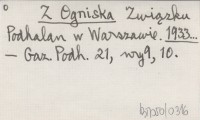 Z Ogniska Związku
Podhalan w Warszawie. 1933...
— Gaz. Podh. 21, nr 9, 10.